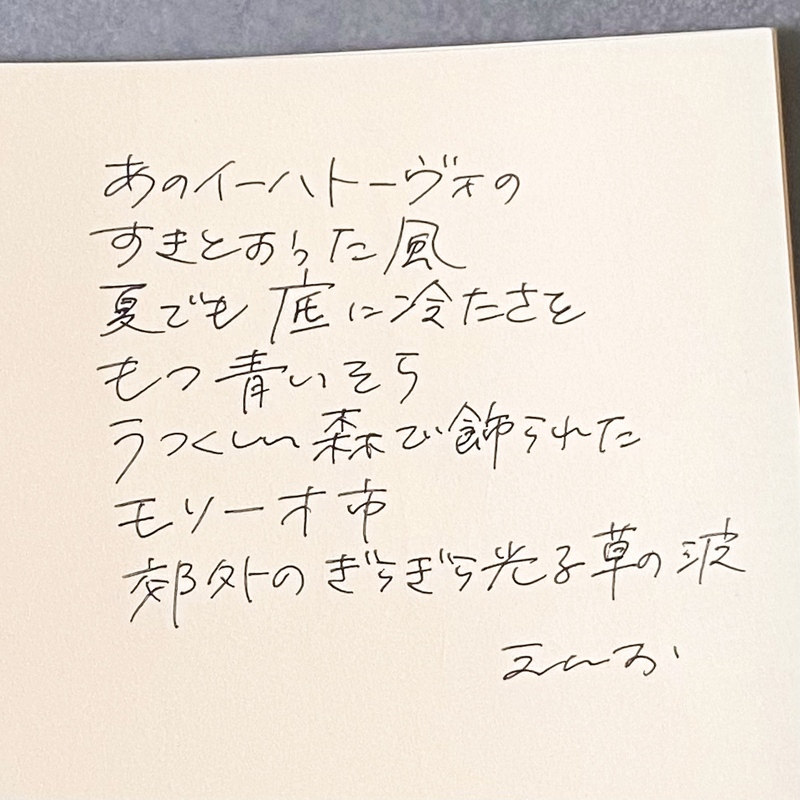 あのイーハトーヴォの
すきとおった風
夏でも底に冷たさを
もつ青いそら
うつくしい森で飾られた
モリーオ市
郊外のぎらぎら光る草の波